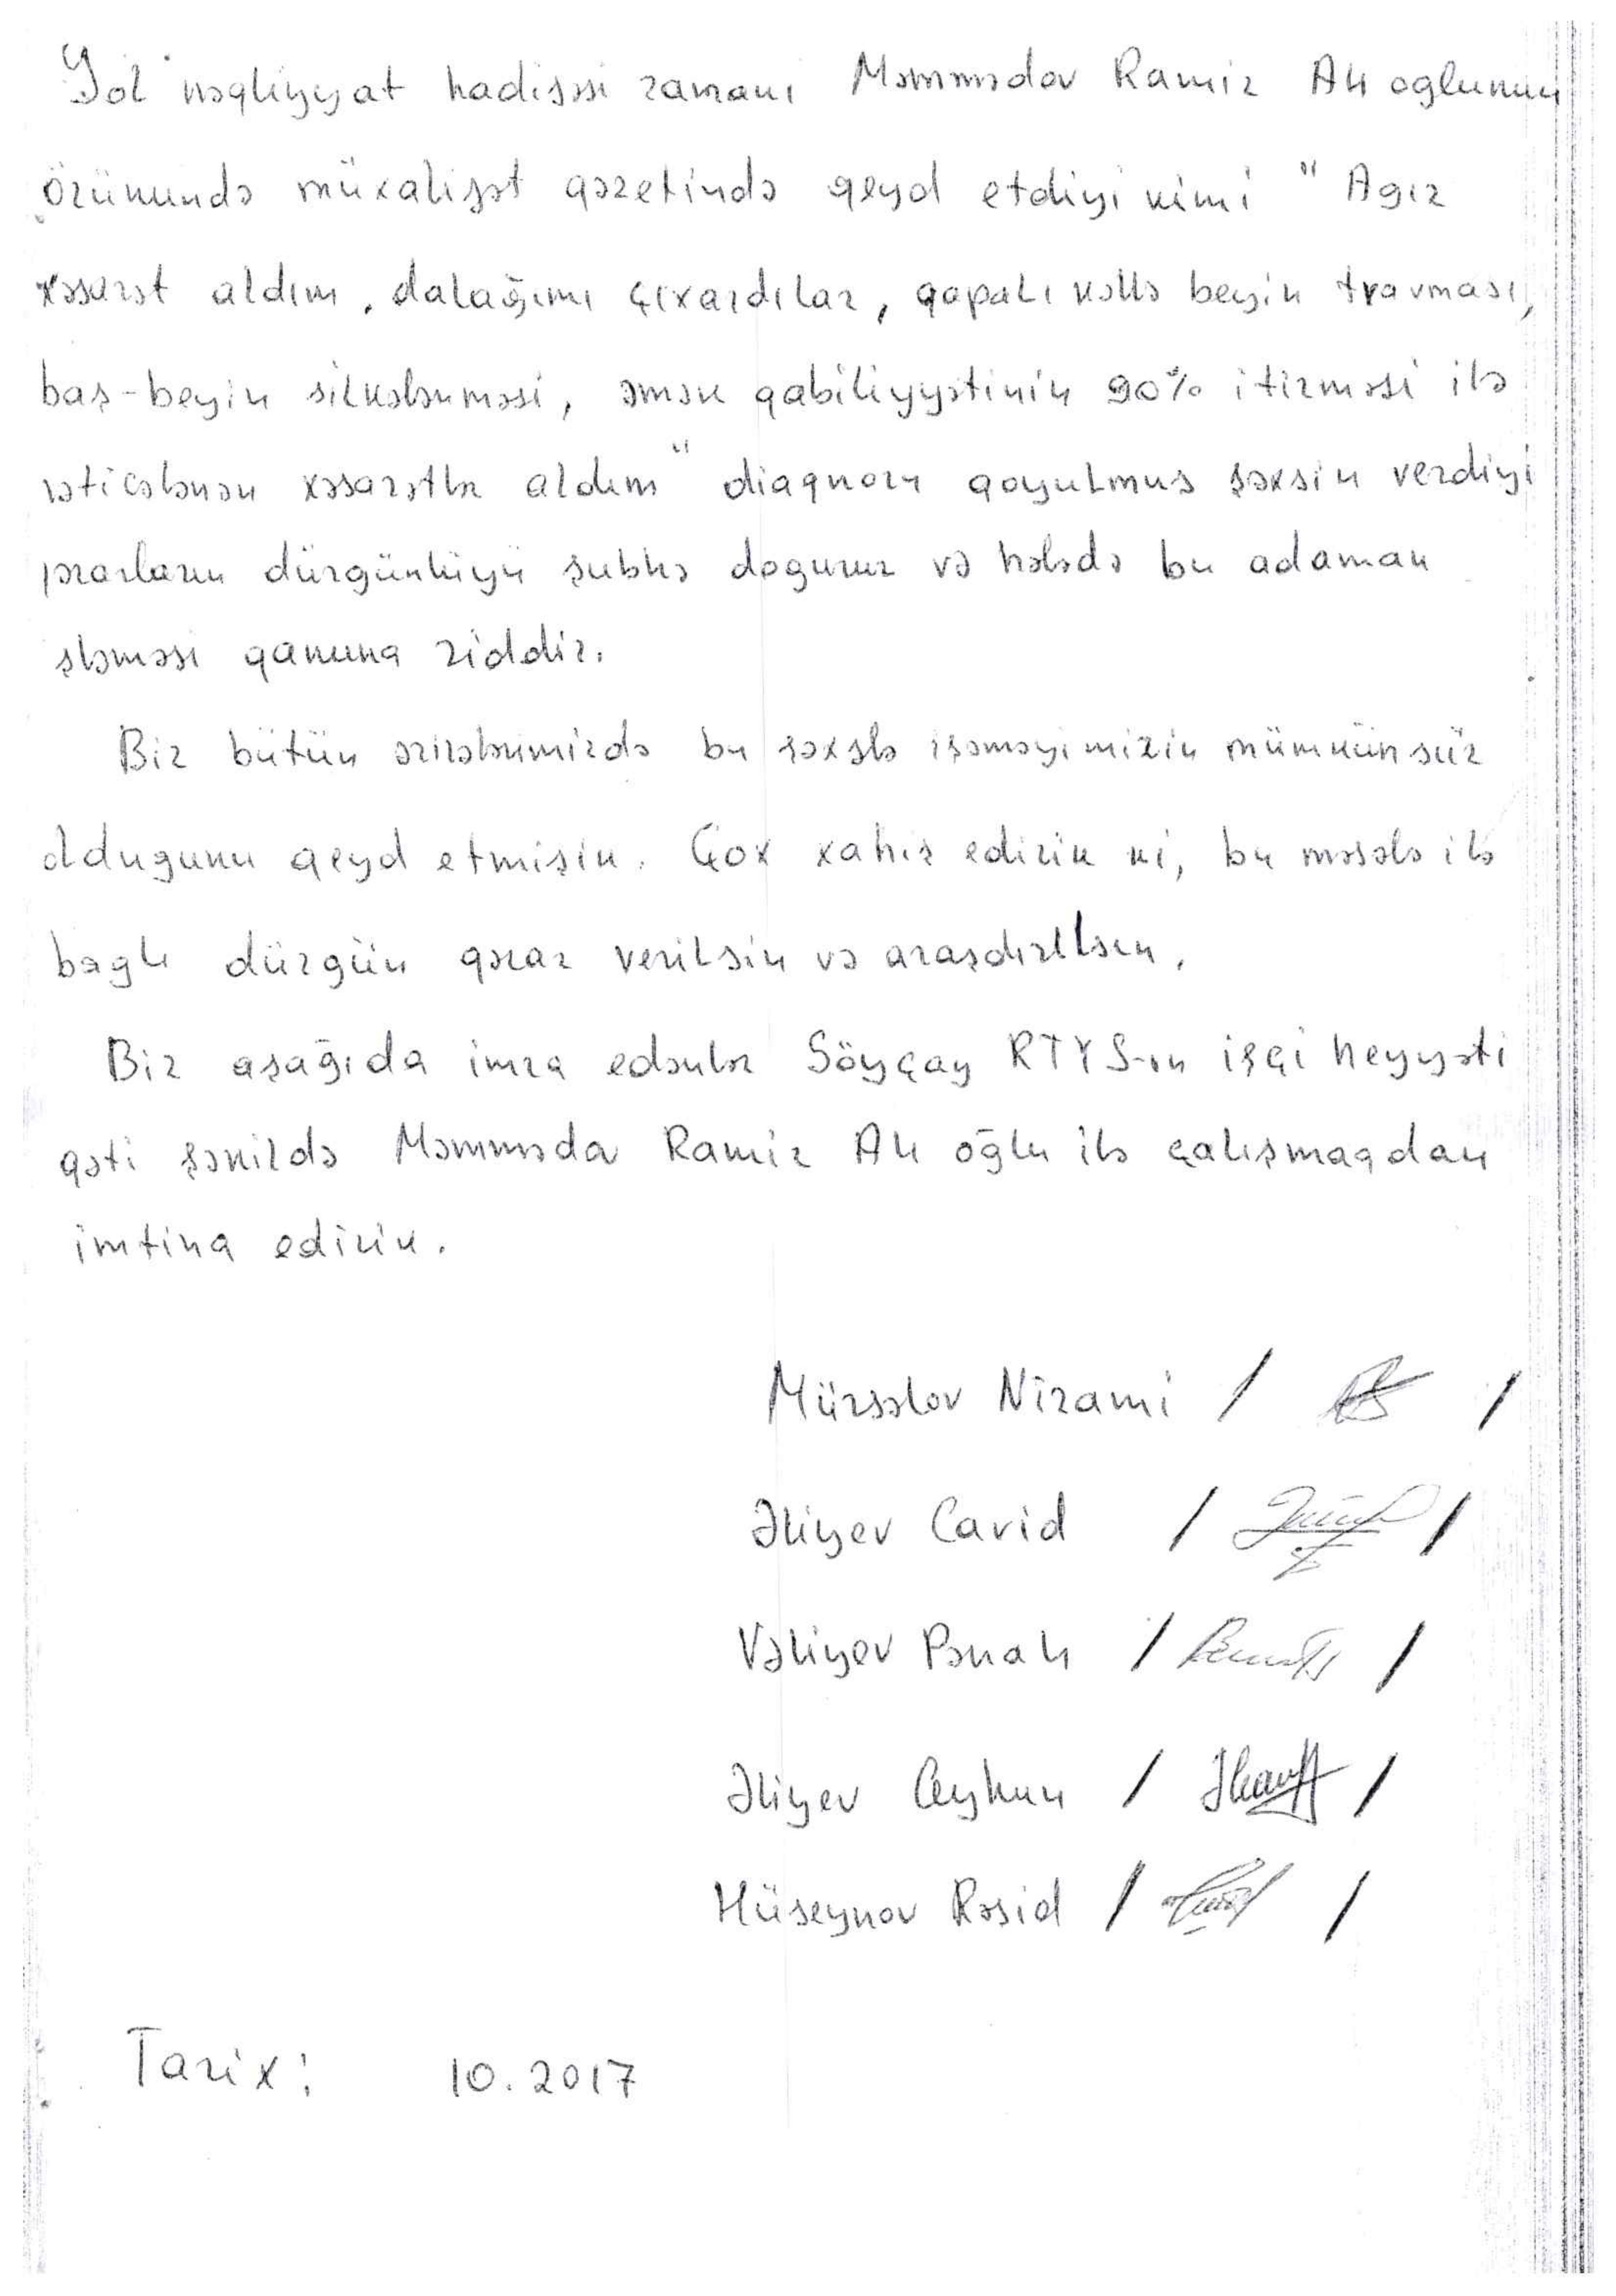 Yol nəqliyyat hadisəsi zamanı Məmmədov Ramiz Alı oglunun
özünündə müxalifət qəzetində qeyd etdiyi kimi "Agır
xəsarət aldım, dalağımı çıxardılar, qapalı kəllə beyin travması,
baş-beyin silkələnməsi, əmək qabiliyyətinin 90% itirməsi ilə
nəticələnən xəsarətlər aldım" diaqnozu qoyulmus şəxsin verdiyi
qərarların dürgünlüyü şubhə dogurur və hələdə bu adamın
işləməsi qanuna ziddir.
Biz bütün ərizələrimizdə bu şəxslə işəməyimizin mümkünsüz
oldugunu qeyd etmişik. Çox xahiş edirik ki, bu məsələ ilə
baglı dürgün qərar verilsin və araşdırılsın.
Biz aşağıda imza edənlər Göyçay RTYS-ın işçi heyyəti
qəti şəkildə Məmmədov Ramiz Alı oğlu ilə çalışmaqdan
imtina edirik.
Mürsəlov Nizami / /
Əliyev Cavid / /
Vəliyev Pənah / /
Əliyev Ceyhun / /
Hüseynov Rəsid / /
Tarix: 10.2017